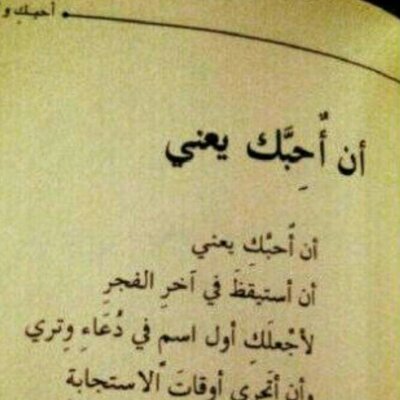 أحبكِ و
أن أُحِبَّك يعني
أن أُحبَّكِ يعني
أن أستيقظَ في آخرِ الفجرِ
لأجْعلَكِ أول اسم في دُعَاءِ وِتري
وأن أتحرى أوقاتَ الاستجابةِ